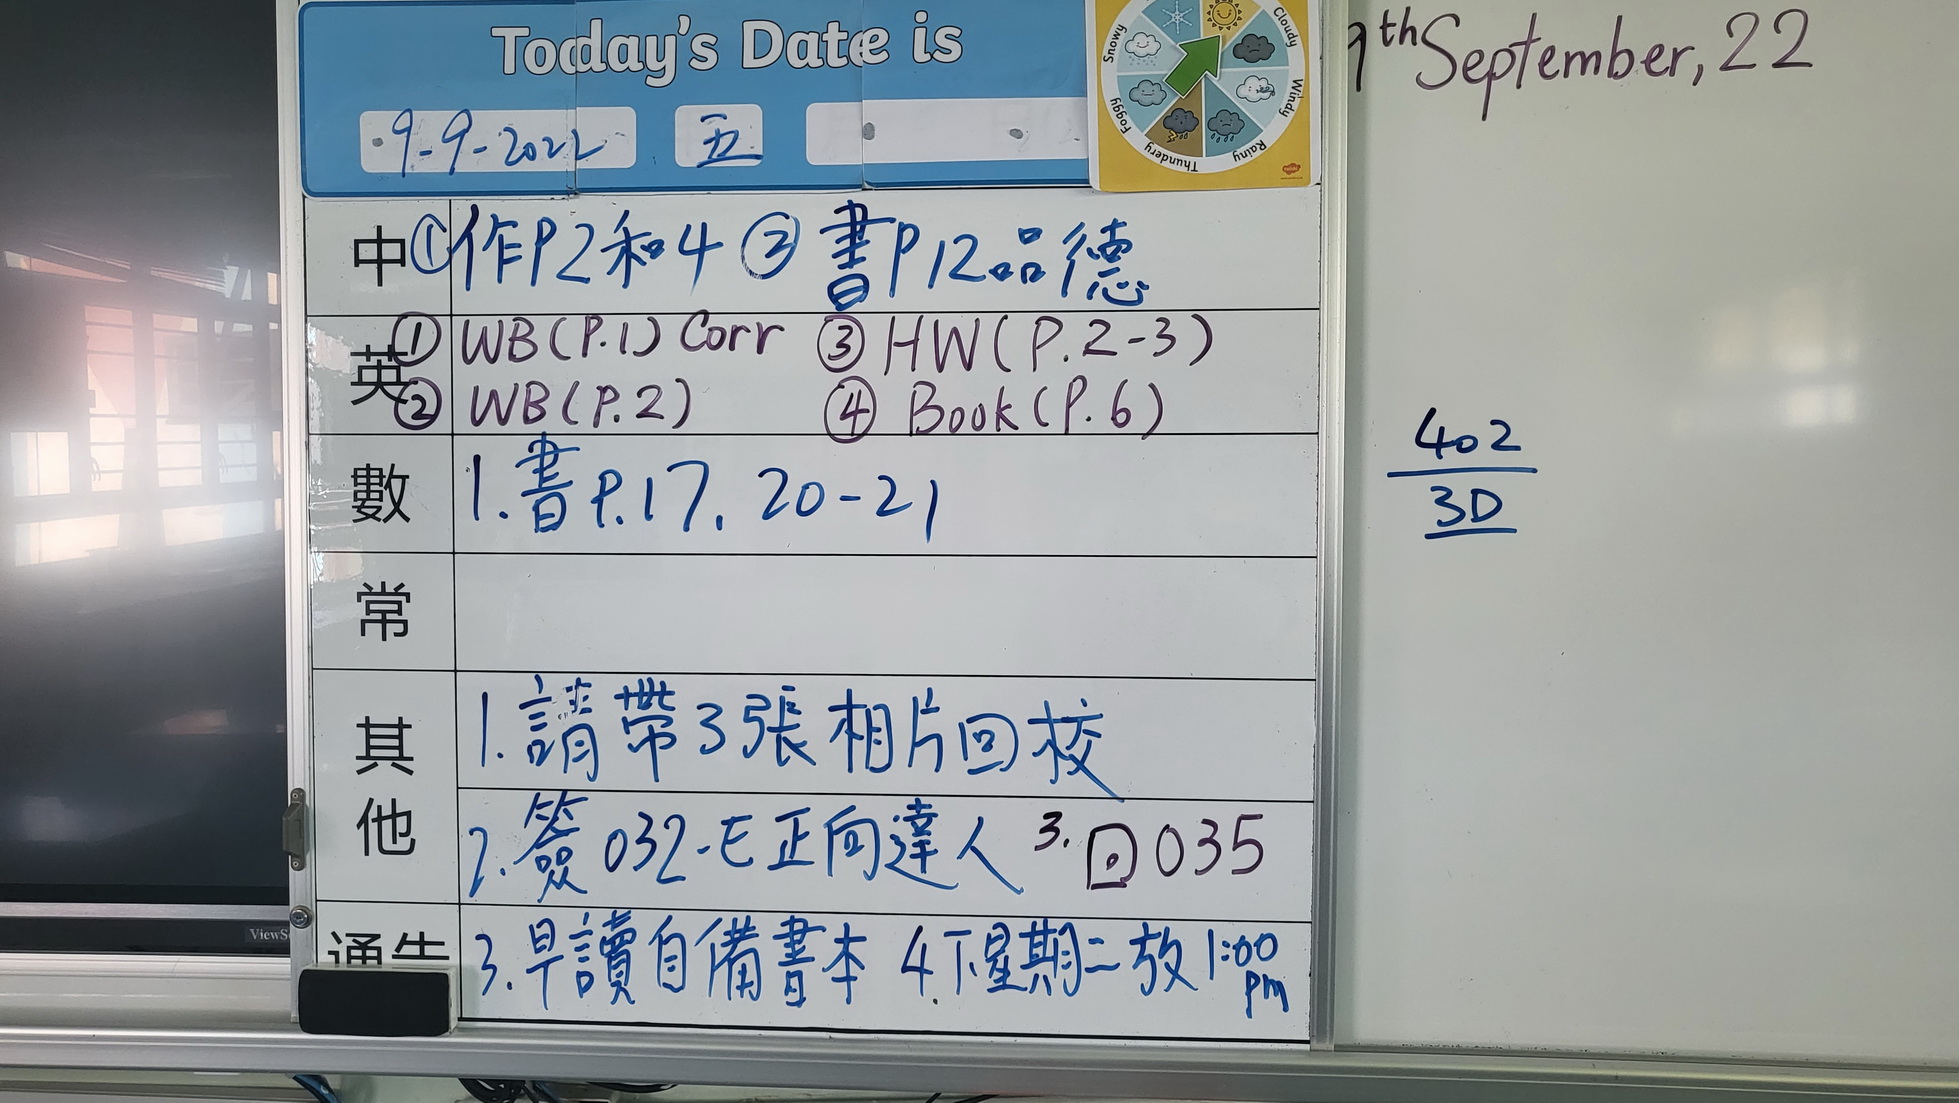 Today's Date is
9-9-2022 五
Snowy Cloudy Windy Rainy Thundery Foggy
9th September, 22
中 ①作P2和4 ②書P12品德
英 ① WB(P.1) Corr ③ HW(P.2-3)
② WB(P.2) ④ Book(P.6)
數 1.書P.17, 20-21
402
3D
常
其他 1.請帶3張相片回校
2.簽032-E正向達人 3.回035
通告 3.早讀自備書本 4.下星期二放1:00
pm
ViewS